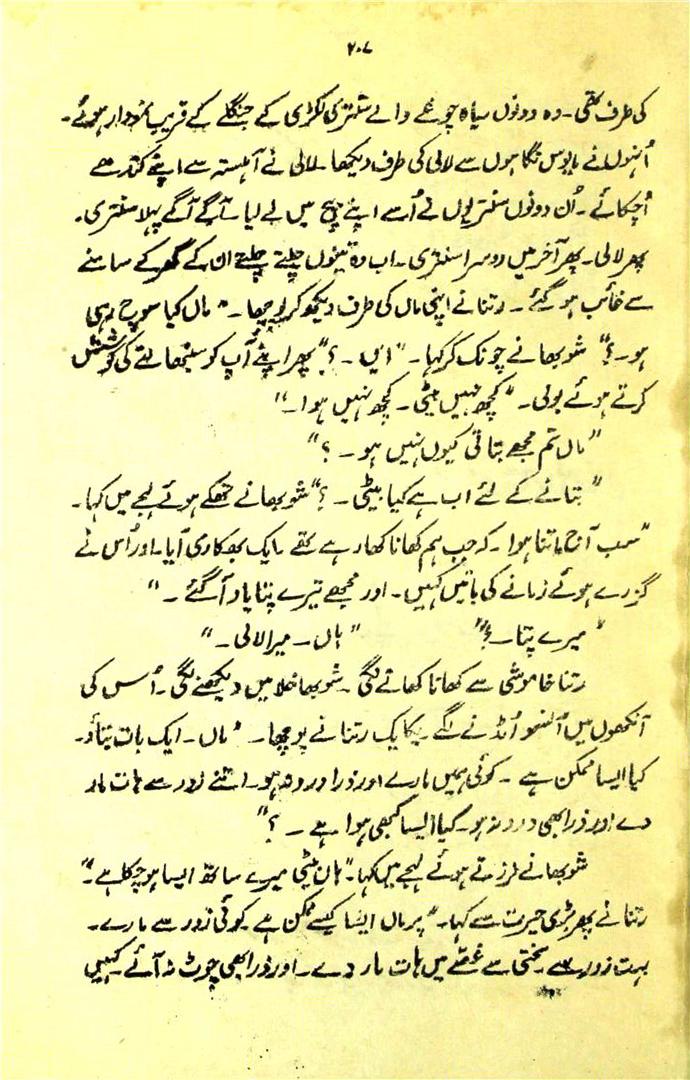 ۲۰۷
کی طرف تھی۔ وہ دونوں سیاہ چوغے والے سنتری لکڑی کے جنگلے کے قریب نمودار ہوئے۔
اُنہوں نے مایوس نگاہوں سے لالی کی طرف دیکھا۔ لالی نے آہستہ سے اپنے کندھے
اُچکائے۔ اُن دونوں سنتریوں نے اُسے اپنے بیچ میں لے لیا۔ آگے آگے پہلا سنتری۔
پھر لالی۔ پھر آخر میں دوسرا سنتری۔ اب وہ تینوں چلتے چلتے ان کے گھر کے سامنے
سے غائب ہو گئے۔ رتنا نے اپنی ماں کی طرف دیکھ کر پوچھا۔ "ماں کیا سوچ رہی
ہو۔؟" شوبھا نے چونک کر کہا۔ "ایں۔؟" پھر اپنے آپ کو سنبھالنے کی کوشش
کرتے ہوئے بولی۔ "کچھ نہیں بیٹی۔ کچھ نہیں ہوا۔"
"ماں تم مجھے بتاتی کیوں نہیں ہو۔؟"
"بتانے کے لئے اب ہے کیا بیٹی۔؟" شوبھا نے تھکے ہوئے لہجے میں کہا۔
"سب آج اتنا ہوا۔ کہ جب ہم کھانا کھا رہے تھے۔ ایک بھکاری آیا۔ اور اُس نے
گزرے ہوئے زمانے کی باتیں کہیں۔ اور مجھے تیرے پتا یاد آ گئے۔"
"میرے پتا۔؟" "ہاں۔ میرا لالی۔"
رتنا خاموشی سے کھانا کھانے لگی۔ شوبھا خلا میں دیکھنے لگی۔ اُس کی
آنکھوں میں آنسو اُمڈنے لگے۔ یکایک رتنا نے پوچھا۔ "ماں۔ ایک بات بتاؤ۔
کیا ایسا ممکن ہے۔ کوئی ہمیں مارے اور ذرا درد نہ ہو۔ اتنے زور سے ہات مار
دے اور ذرا بھی درد نہ ہو۔ کیا ایسا کبھی ہوا ہے۔؟"
شوبھا نے لرزتے ہوئے لہجے میں کہا۔ "ہاں بیٹی میرے ساتھ ایسا ہو چکا ہے۔"
رتنا نے پھر بڑی حیرت سے کہا۔ "پر ماں ایسا کیسے ممکن ہے کوئی زور سے مارے۔
بہت زور سے۔ سختی سے غصّے میں ہات مار دے۔ اور ذرا بھی چوٹ نہ آئے۔ کہیں